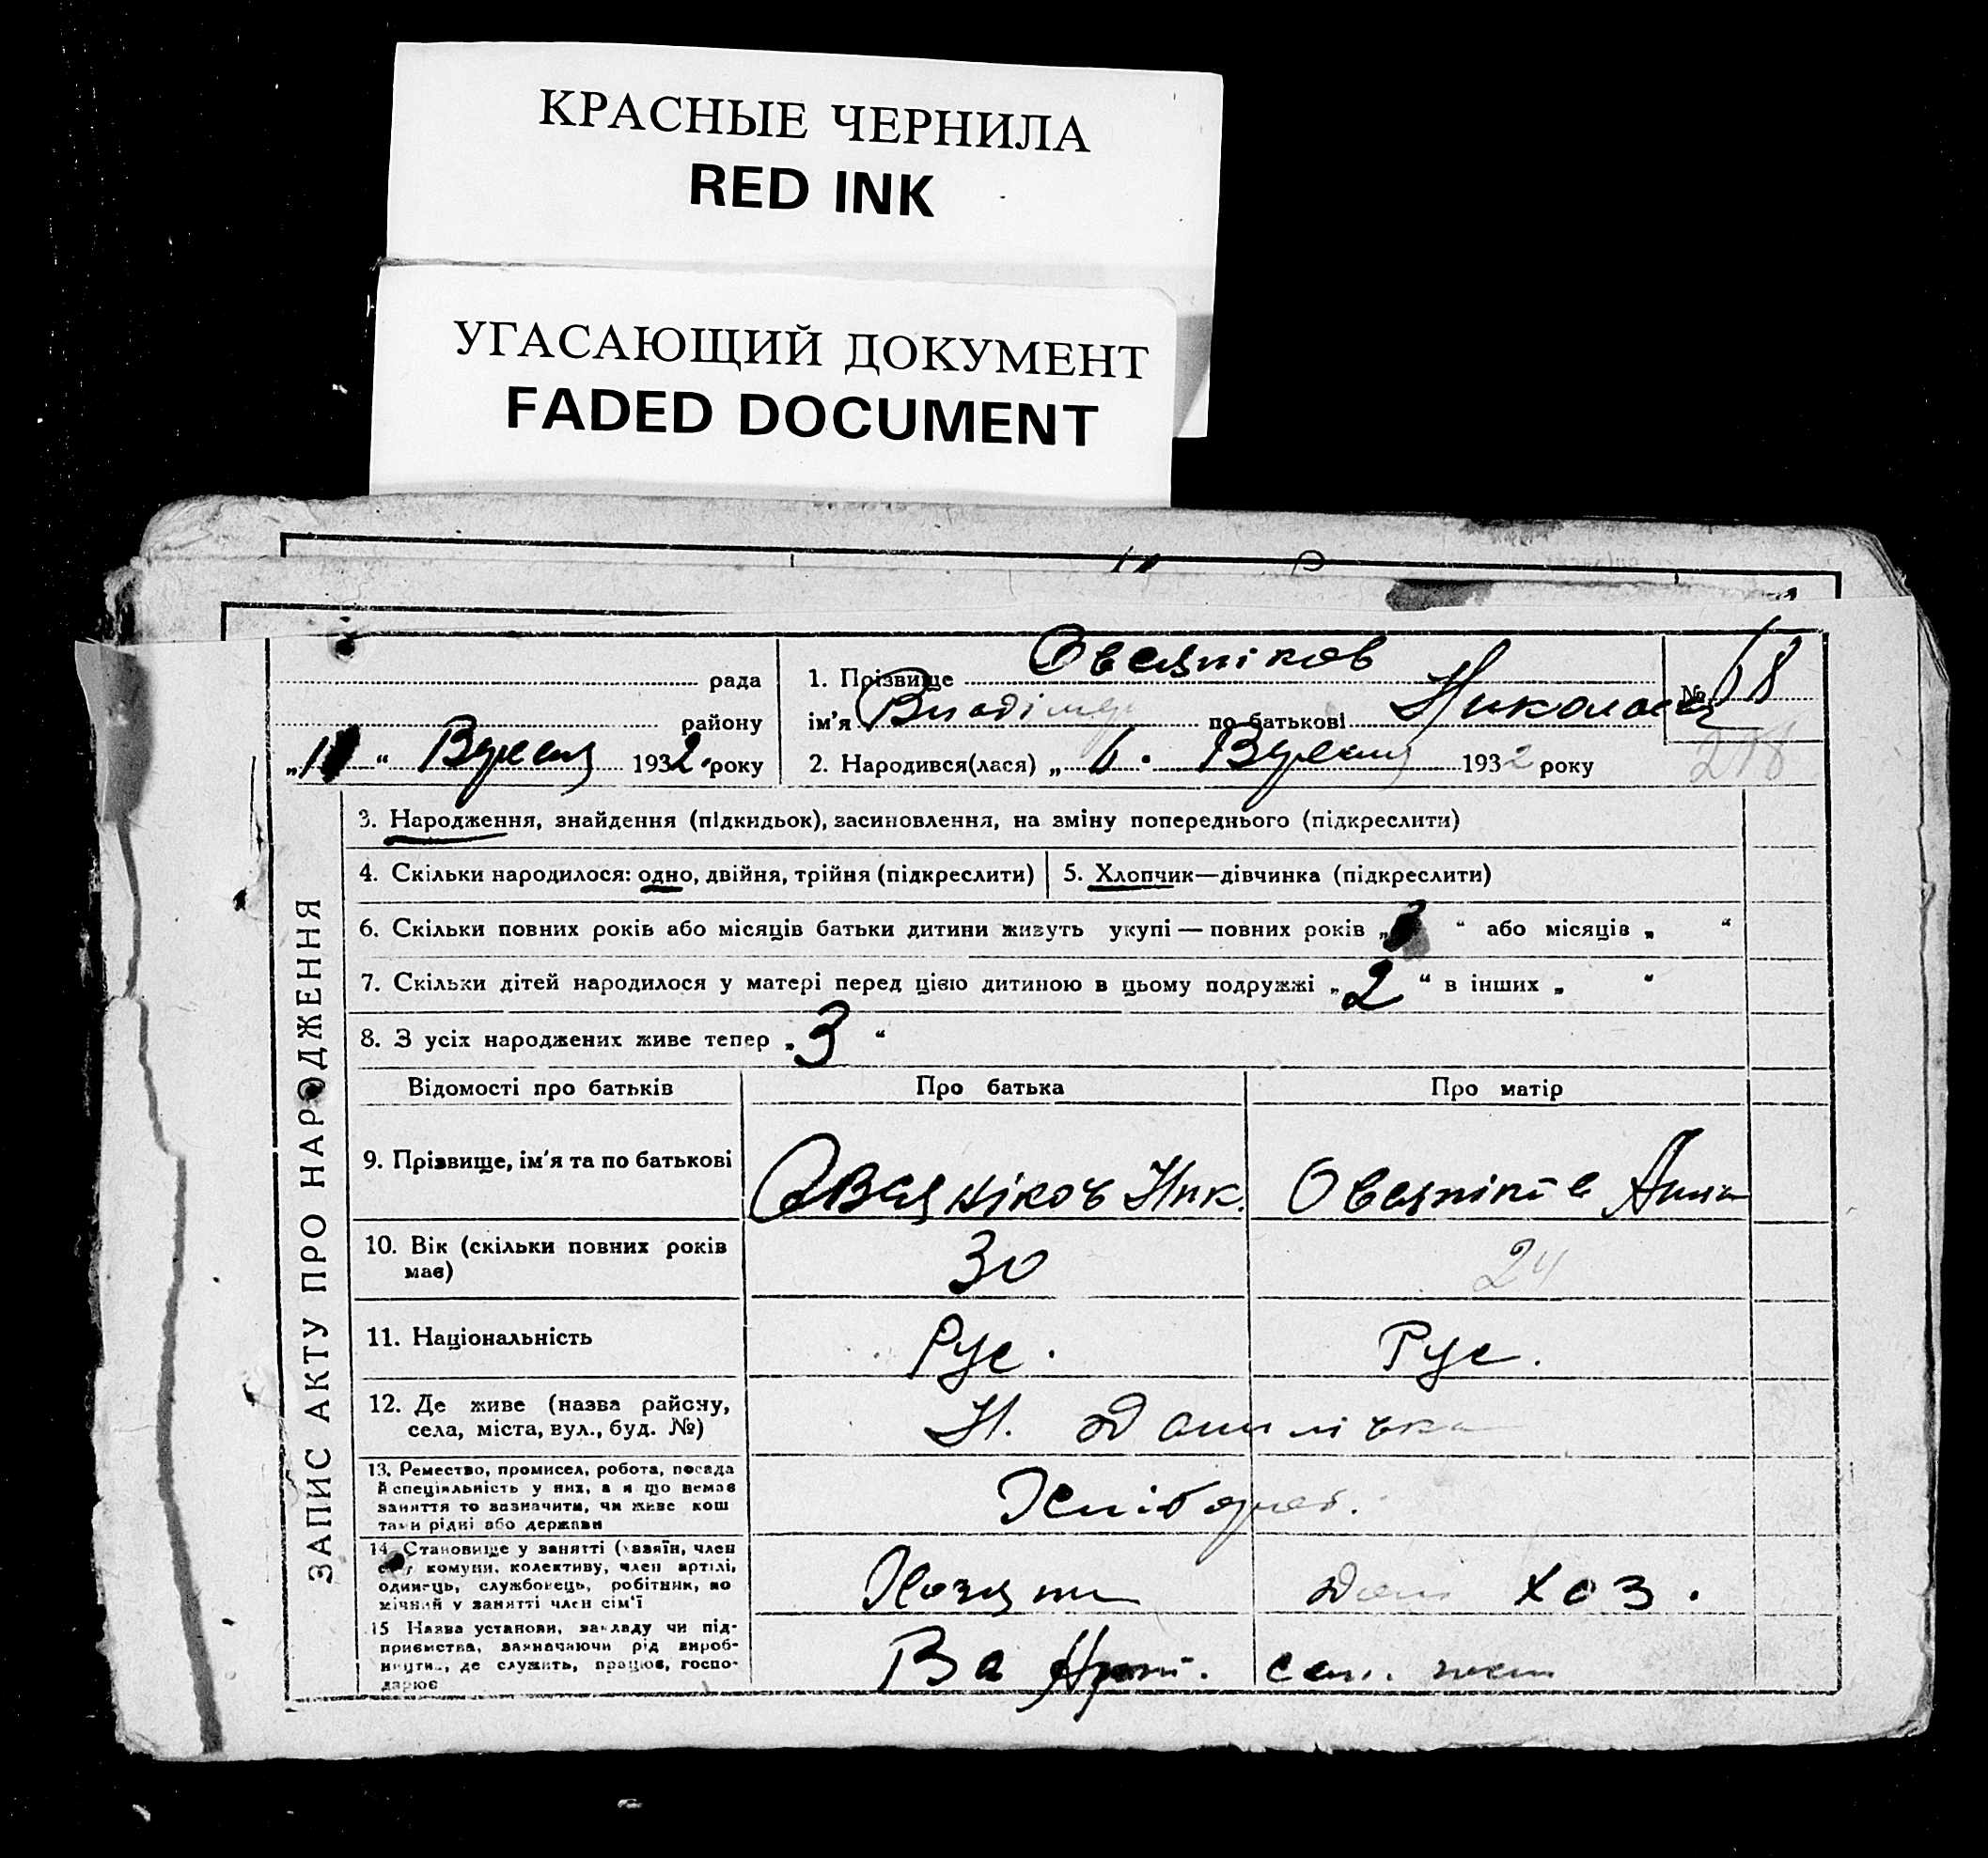 КРАСНЫЕ ЧЕРНИЛА
RED INK
УГАСАЮЩИЙ ДОКУМЕНТ
FADED DOCUMENT
ЗАПИС АКТУ ПРО НАРОДЖЕННЯ
рада
району
"1 " Вересня 1932 року
1. Прізвище Овсяніков
ім'я Владімир по батькові Николаев
№ 68
218
2. Народився(лася) „6" Вересня 1932 року
3. Народження, знайдення (підкидьок), засиновлення, на зміну попереднього (підкреслити)
4. Скільки народилося: одно, двійня, трійня (підкреслити)
5. Хлопчик—дівчинка (підкреслити)
6. Скільки повних років або місяців батьки дитини живуть укупі — повних років „ “ або місяців „ “
7. Скільки дітей народилося у матері перед цією дитиною в цьому подружжі „2“ в інших „ “
8. З усіх народжених живе тепер „3“
Відомості про батьків
Про батька
Про матір
9. Прізвище, ім'я та по батькові
Овсяніков Ник.
Овсянікова Анна
10. Вік (скільки повних років
має)
30
24
11. Національність
Рус.
Рус.
12. Де живе (назва району,
села, міста, вул., буд. №)
Н. Данилівка
13. Ремество, промисел, робота, посада
й спеціяльність у них, а я що немає
заняття то зазначити, чи живе кош
тами рідні або держави
Хлібороб.
14. Становище у занятті (хазяїн, член
комуни, колективу, член артілі,
одинець, службовець, робітник, по
мічний у занятті член сім'ї
Хозяин
Дом хоз.
15 Назва установи, закладу чи під-
приємства, зазначаючи рід вироб-
ництва, де служить, працює, госпо-
дарює